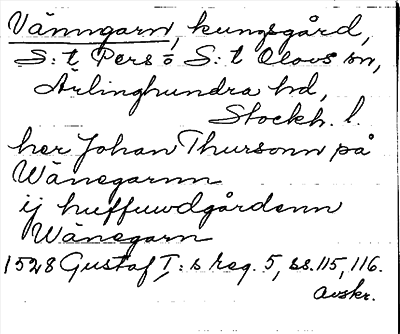 Vänngarn, kungsgård,
S:t Pers o S:t Olovs sn,
Ärlinghundra hd,
Stockh. l.
her Johan Thursonn på
Wänegarnn
ij huffuwdgårdenn
Wänegarn
1528 Gustaf I:s reg. 5, ss. 115, 116.
avskr.